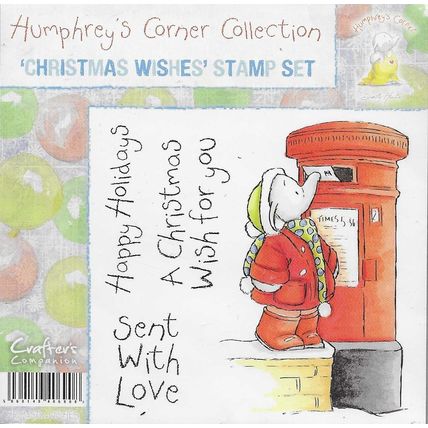 Humphrey's Corner Collection
'CHRISTMAS WISHES' STAMP SET
Humphrey's Corner
Happy Holidays
A Christmas
Wish for you
Sent
With
Love
TIMES
2
Crafter's
Companion